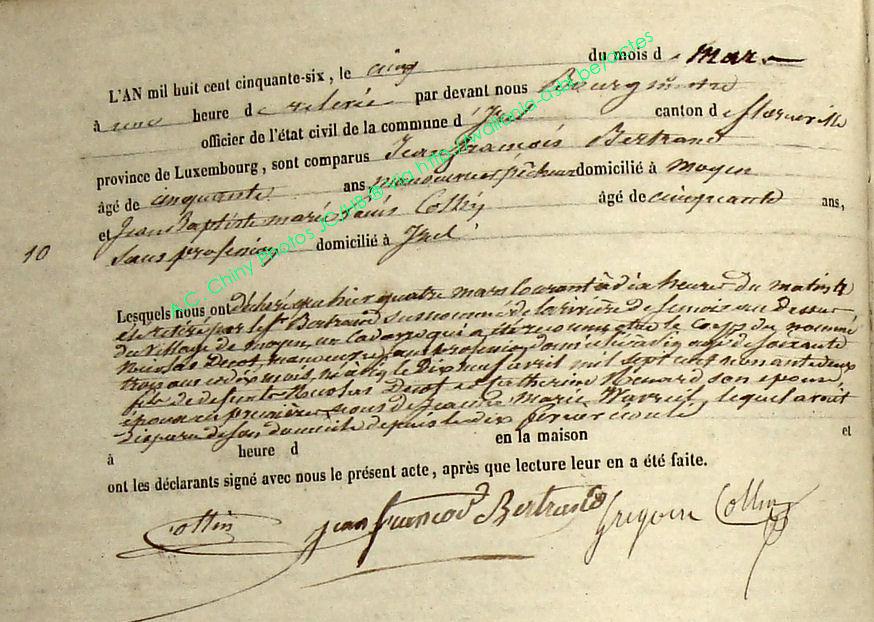 L'AN mil huit cent cinquante-six, le cinq du mois de Mars
à une heure de relevée par devant nous Bourgmestre
officier de l'état civil de la commune d'Izel canton de florenville
province de Luxembourg, sont comparus Jean françois Bertrand
âgé de cinquante ans, manoeuvre et pêcheur domicilié à moyen
et Jean Baptiste marie Collin âgé de cinquante ans,
sans profession domicilié à Izel
10
Lesquels nous ont déclaré qu'hier quatre mars courant à dix heures du matin
été retiré par le Sr Bertrand susnommé de la rivière de Semois au dessus
du village de moyen, un Cadavre qui a été reconnu être le Corps du nommé
Nicolas Decot, manoeuvre sans profession domicilié âgé de soixante
trois ans et dix mois, né le Dix neuf avril mil sept cent nonante deux
fils de defunts Nicolas Decot et Catherine Renard son épouse,
époux en premières noces de Jeanne Marie lequel avait
disparu de son domicile depuis le dix février écoulé
à heure d en la maison et
ont les déclarants signé avec nous le présent acte, après que lecture leur en a été faite.
Collin Jean François Bertrand Grégoire Collin
A.C. Chiny Photos JCJ+B-B via http://wallonia-asbl.be/actes